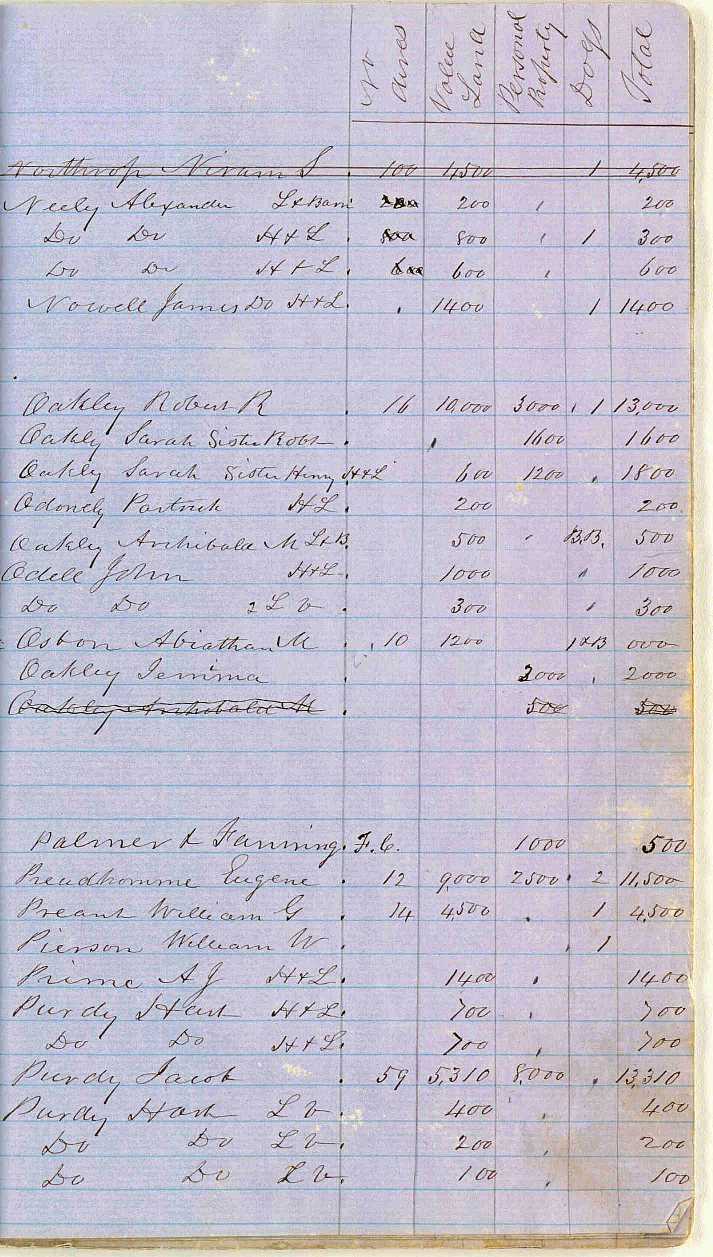 No Acres Value Land Personal Property Dogs Total
Northrop Niram S. 100 4500 1 4,500
Neely Alexander L & Barn 200 200
Do Do H & L. 800 1 300
Do Do H & L. 600 600
Nowell James Do H & L. 1400 1 1400
Oakley Robert R. 16 10,000 3000 1 13,000
Oakly Sarah Sister Robt. 1600 1600
Oakly Sarah Sister Henry H & L 600 1200 1800
Odonely H L. 200 200
Oakley Archibald M L & B. 500 B.B. 500
Odell John H & L. 1000 1000
Do Do 2 L v. 300 300
Osbon Abiathar M. 10 1200 1 & B 000
Oakley Jemima. 2000 2000
Oakley Archibald M. 500 500
Palmer & Fanning. F. C. 1000 500
Preudhomme Eugene. 12 9,000 2500 2 11,500
William G. 14 4,500 1 4,500
Pierson William W. 1
Prime A J H & L. 1400 1400
Purdy Hart H & L. 700 700
Do Do H & L. 700 700
Purdy Jacob. 59 5,310 8,000 13,310
Purdy Hart L v. 400 400
Do Do L v. 200 200
Do Do L v. 100 100